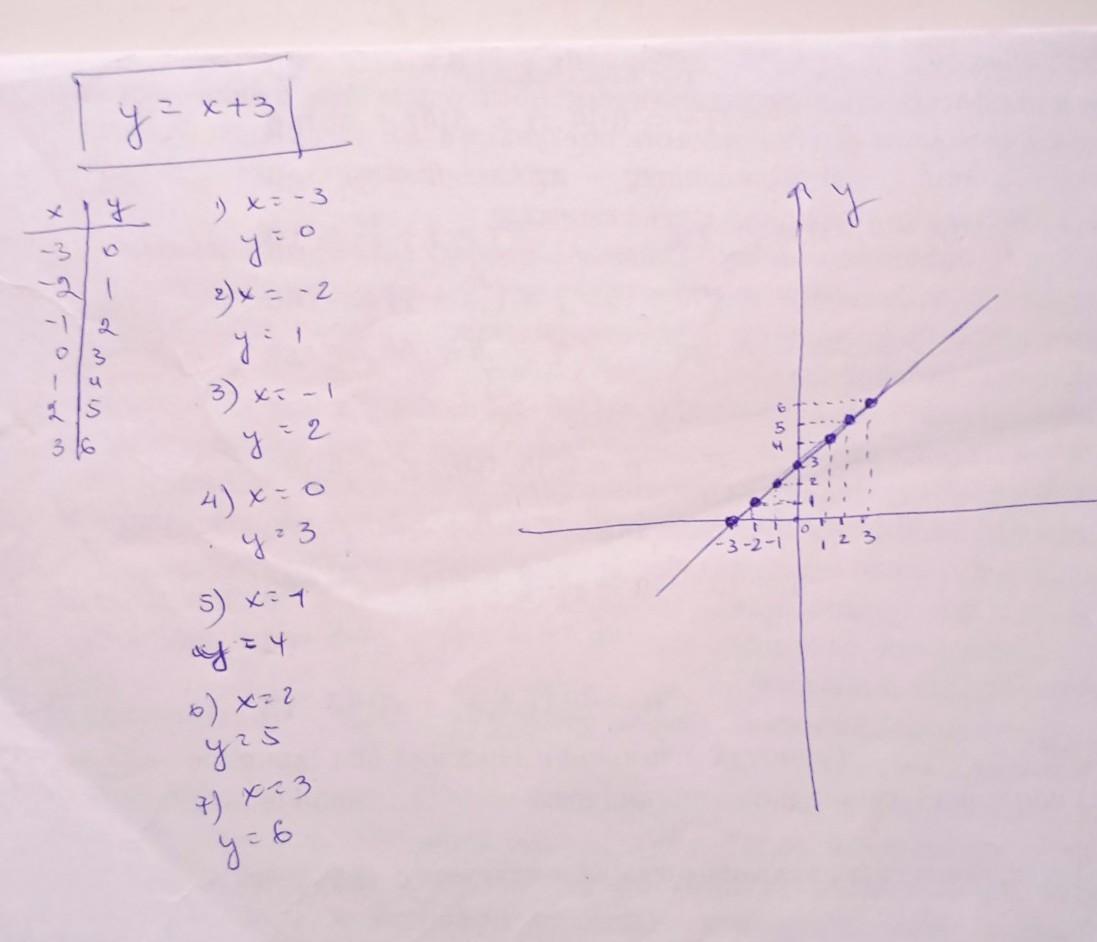 y = x+3
x y
-3 0
-2 1
-1 2
0 3
1 4
2 5
3 6
1) x = -3
y = 0
2) x = -2
y = 1
3) x = -1
y = 2
4) x = 0
y = 3
5) x = 1
y = 4
6) x = 2
y = 5
7) x = 3
y = 6
y
6
5
4
3
2
1
-3 -2 -1 0 1 2 3